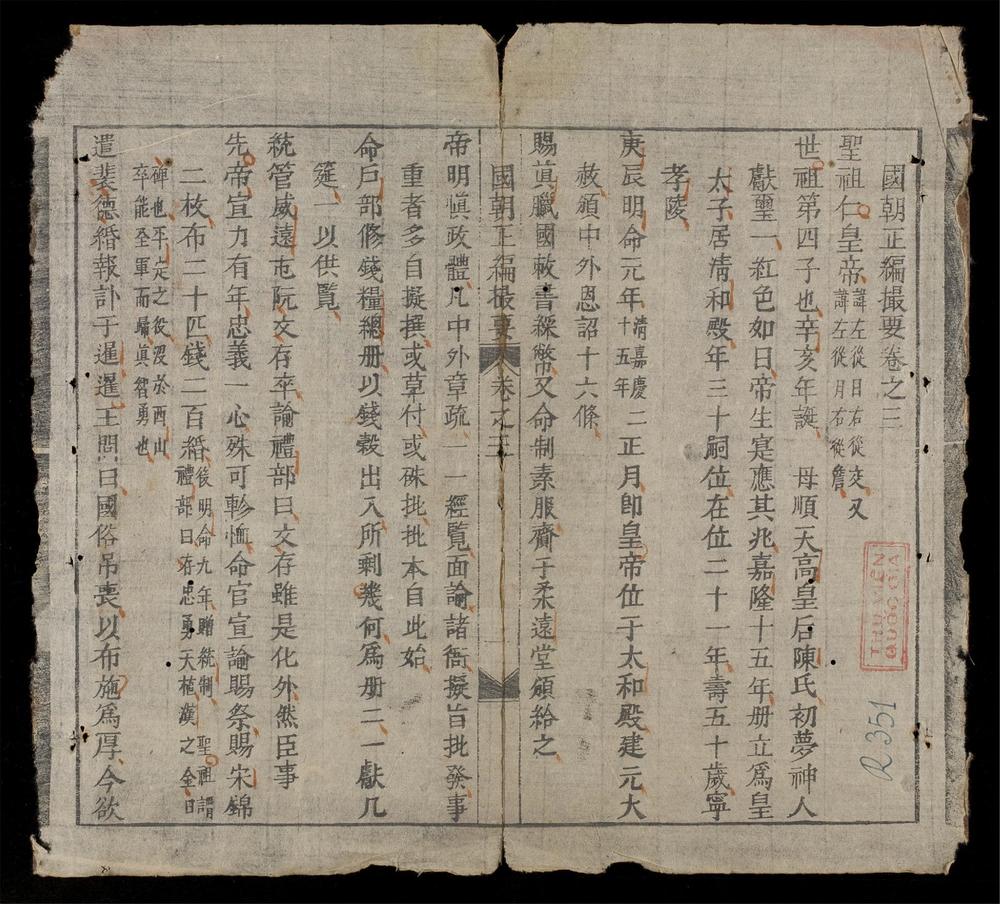 國朝正編撮要卷之三
聖祖仁皇帝諱左從日右從交又諱左從月右從詹
世祖第四子也辛亥年誕 母順天高皇后陳氏初夢神人
獻璽一紅色如日帝生寔應其兆嘉隆十五年册立爲皇
太子居清和殿年三十嗣位在位二十一年壽五十歲寧
孝陵
庚辰明命元年清嘉慶二十五年正月卽皇帝位于太和殿建元大
赦頒中外恩詔十六條
賜眞臘國敕書綵幣又命制素服齋于柔遠堂頒給之
國朝正編撮要 卷之三
帝明愼政體凡中外章疏一一經覽面諭諸衙擬旨批發事
重者多自擬撰或草付或硃批批本自此始
命戶部修錢糧總册以錢穀出入所剩幾何爲册二一獻几
筵一以供覽
統管威遠屯阮文存卒諭禮部曰文存雖是化外然臣事
先帝宣力有年忠義一心殊可軫恤命官宣諭賜祭賜宋錦
二枚布二十匹錢二百緡後明命九年贈統制 聖祖謂禮部曰存忠勇天植漢之金日
磾也平定之役沒於西山卒能全軍而歸眞智勇也
遣裴德緡報訃于暹暹王問曰國俗吊喪以布施爲厚今欲
THƯ VIỆN
QUỐC GIA
R 351